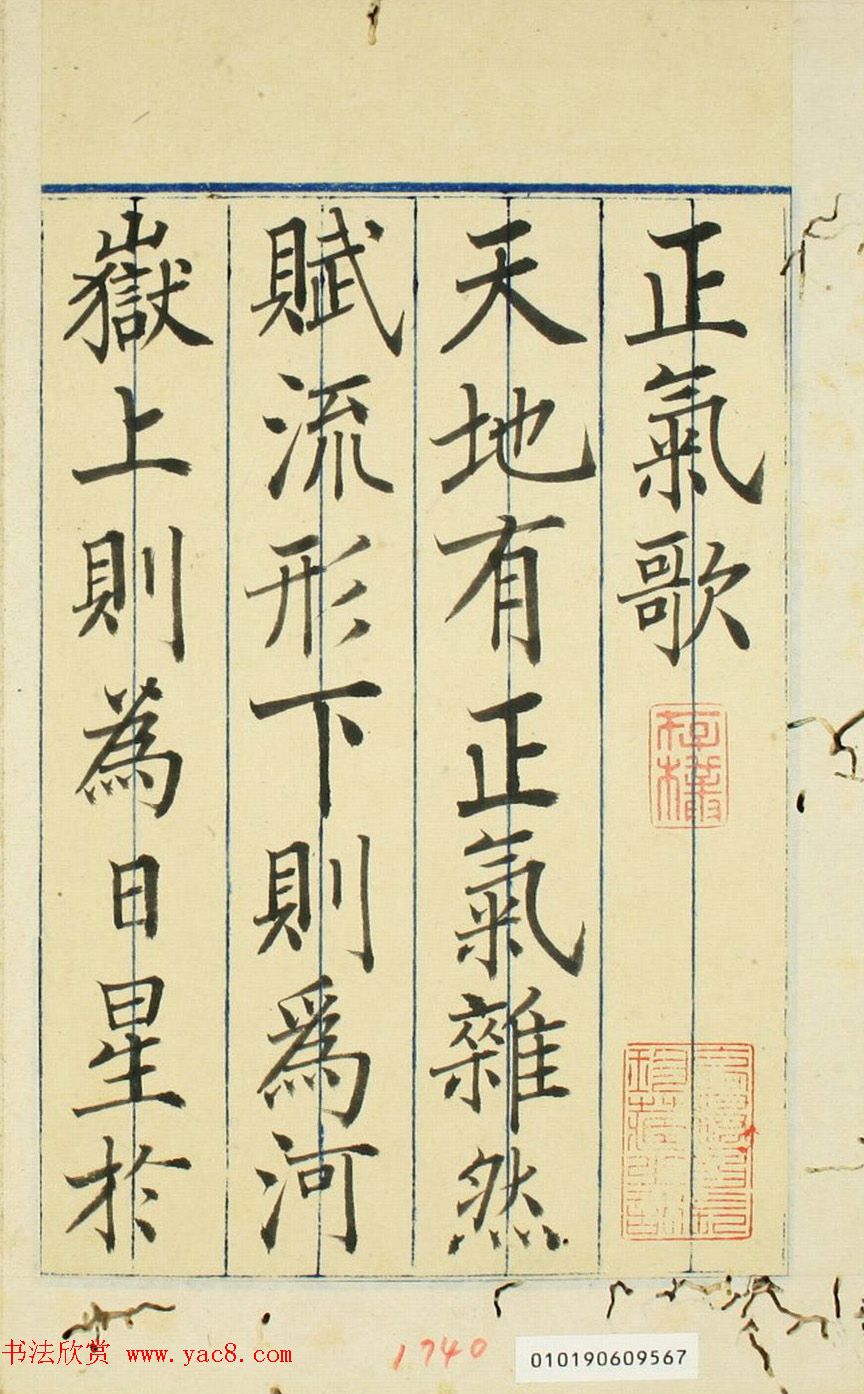 正氣歌
天地有正氣雜然
賦流形下則爲河
嶽上則為日星於
1740
010190609567
书法欣赏 www.yac8.com